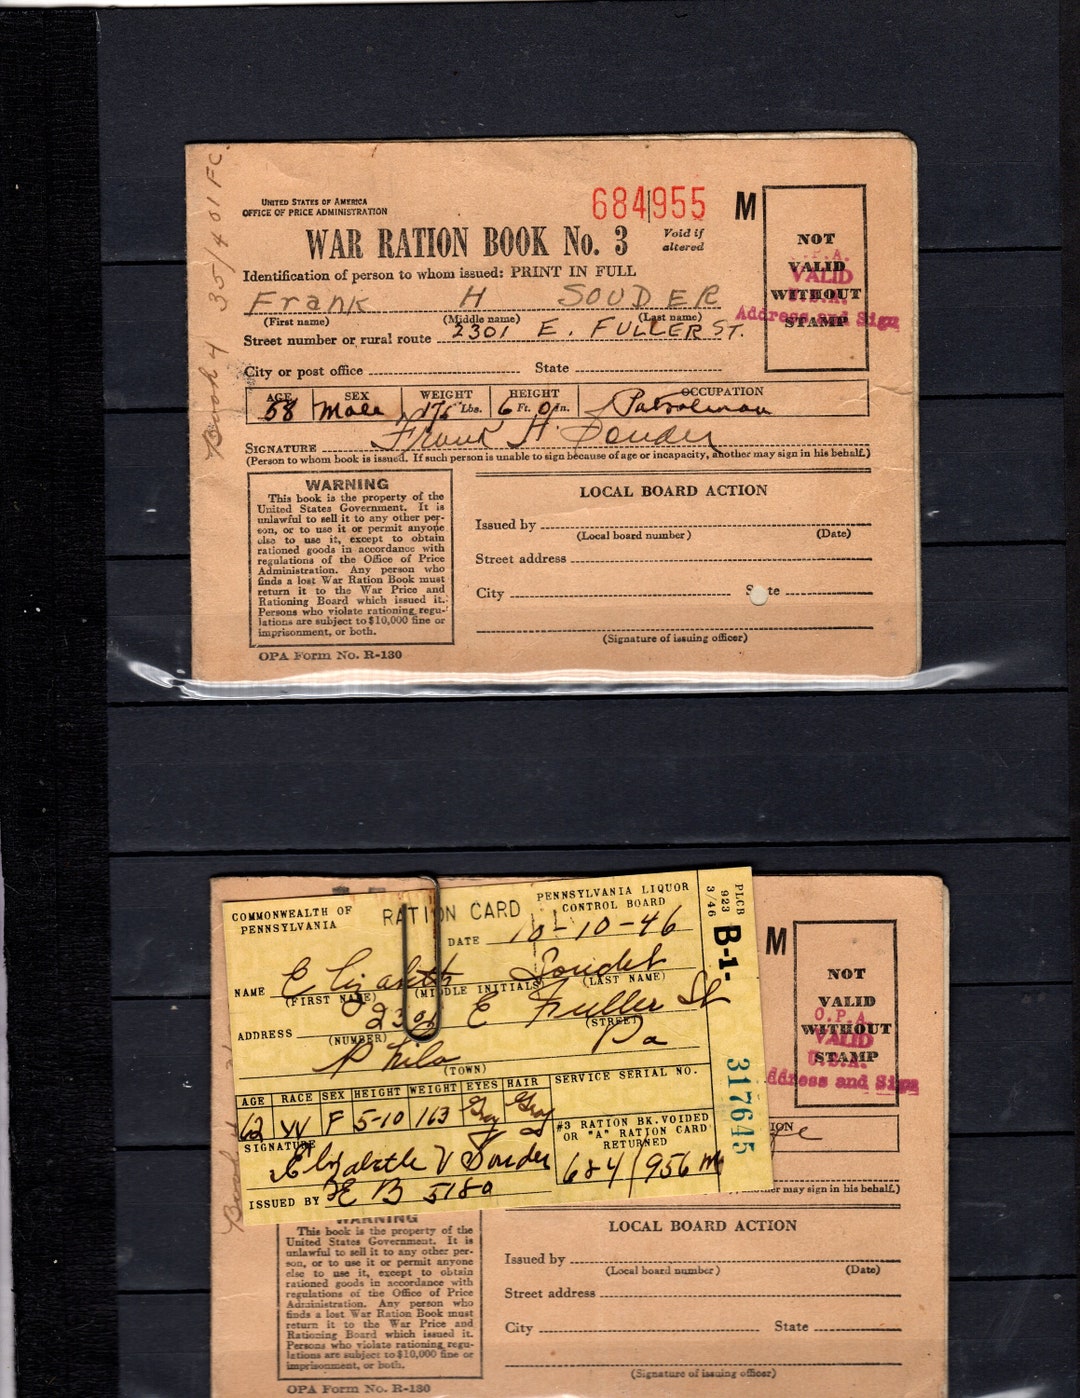 Book 4 35/401 FC.
UNITED STATES OF AMERICA
OFFICE OF PRICE ADMINISTRATION
684|955 M
WAR RATION BOOK No. 3
Void if
altered
Identification of person to whom issued: PRINT IN FULL
Frank H SOUDER
(First name) (Middle name) (Last name)
Street number or rural route 2301 E. FULLER ST.
City or post office State
AGE SEX WEIGHT HEIGHT OCCUPATION
58 Male 175 Lbs. 6 Ft. 0 In. Patrolman
SIGNATURE Frank H. Souder
(Person to whom book is issued. If such person is unable to sign because of age or incapacity, another may sign in his behalf.)
NOT
VALID
WITHOUT
STAMP
O.P.A.
VALID
U.S.A.
Address and Sign
WARNING
This book is the property of the
United States Government. It is
unlawful to sell it to any other per-
son, or to use it or permit anyone
else to use it, except to obtain
rationed goods in accordance with
regulations of the Office of Price
Administration. Any person who
finds a lost War Ration Book must
return it to the War Price and
Rationing Board which issued it.
Persons who violate rationing regu-
lations are subject to $10,000 fine or
imprisonment, or both.
LOCAL BOARD ACTION
Issued by
(Local board number) (Date)
Street address
City S te
(Signature of issuing officer)
OPA Form No. R-130
COMMONWEALTH OF
PENNSYLVANIA
RATION CARD
PENNSYLVANIA LIQUOR
CONTROL BOARD
DATE 10-10-46
NAME Elizabeth Souder
(FIRST NAME) (MIDDLE INITIALS) (LAST NAME)
ADDRESS 2301 E Fuller St
(NUMBER) (STREET)
Phila Pa
(TOWN)
AGE RACE SEX HEIGHT WEIGHT EYES HAIR
62 W F 5-10 163 Gray Gray
SERVICE SERIAL NO.
#3 RATION BK. VOIDED
OR "A" RATION CARD
RETURNED
684/956 M
SIGNATURE
Elizabeth V Souder
ISSUED BY E B 5180
PLCB
923
3/46
B-1-
317645
M
NOT
VALID
WITHOUT
STAMP
O.P.A.
VALID
U.S.A.
ddress and Sign
ION
other may sign in his behalf.)
WARNING
This book is the property of the
United States Government. It is
unlawful to sell it to any other per-
son, or to use it or permit anyone
else to use it, except to obtain
rationed goods in accordance with
regulations of the Office of Price
Administration. Any person who
finds a lost War Ration Book must
return it to the War Price and
Rationing Board which issued it.
Persons who violate rationing regu-
lations are subject to $10,000 fine or
imprisonment, or both.
LOCAL BOARD ACTION
Issued by
(Local board number) (Date)
Street address
City State
(Signature of issuing officer)
OPA Form No. R-130